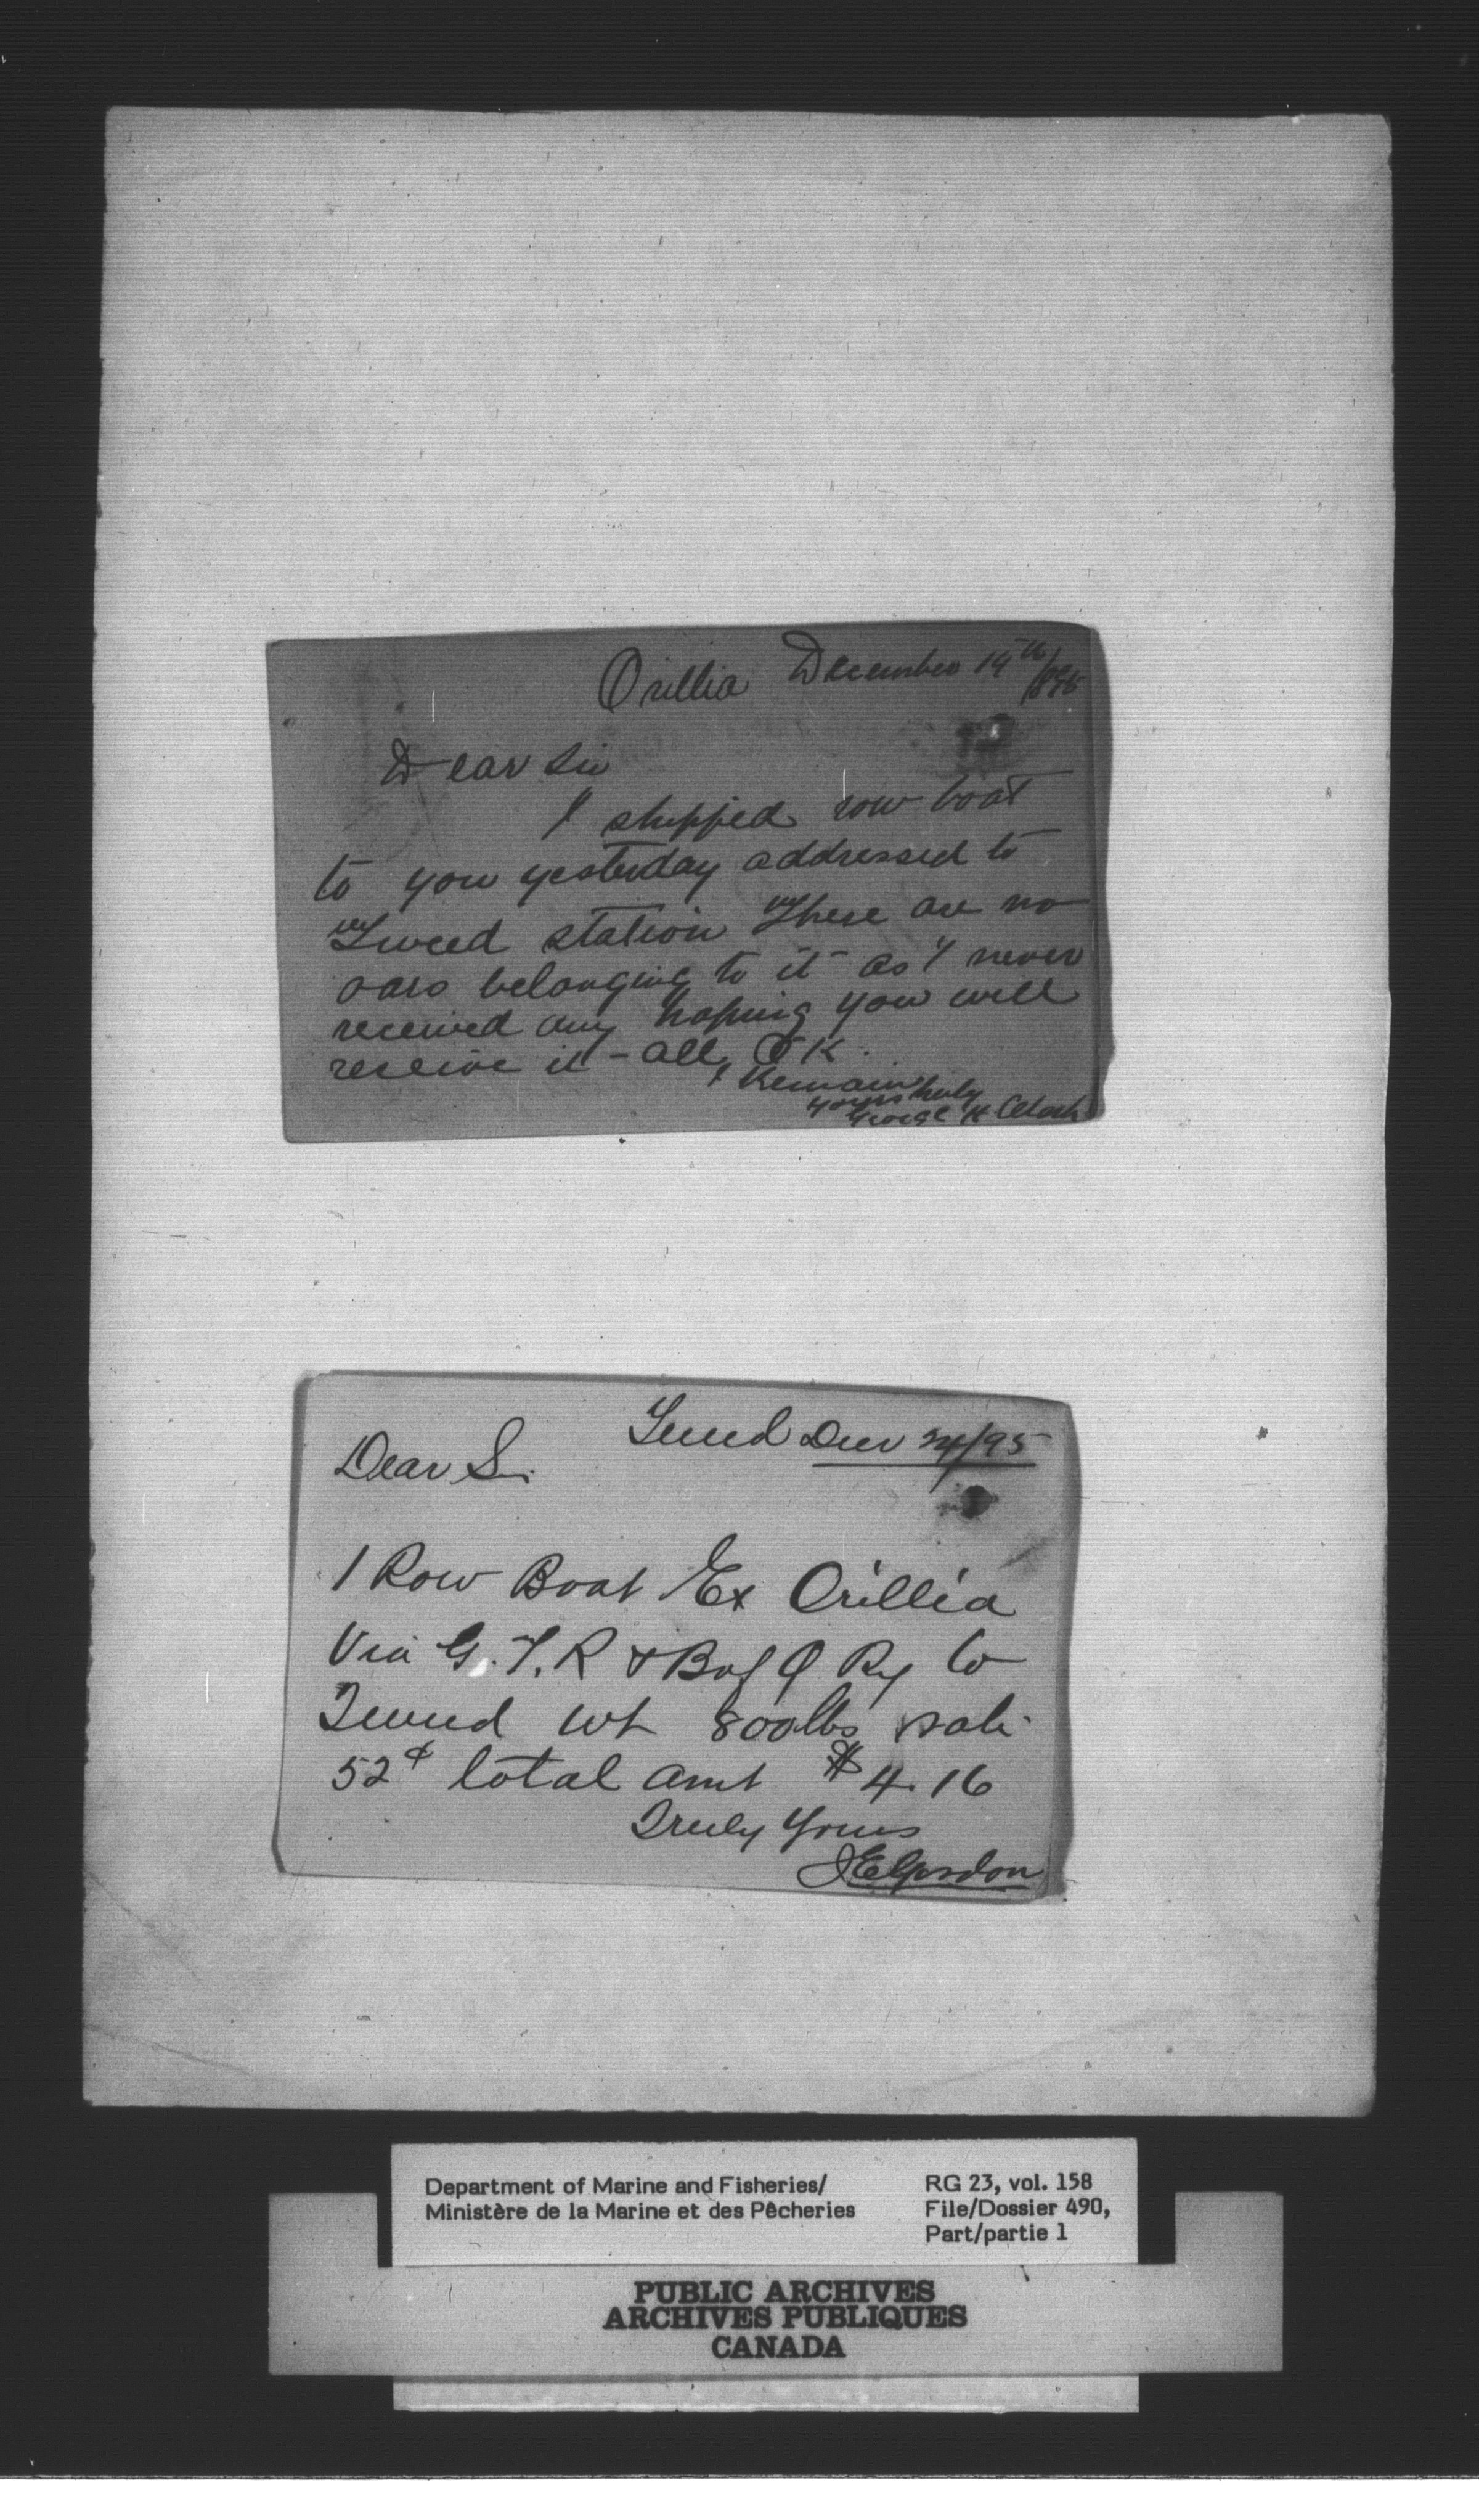 Orillia December 19th/1895
Dear Sir
I shipped row boat
to you yesterday addressed to
Tweed station There are no
oars belonging to it as I never
received any hoping you will
receive it - all O K.
I Remain
yours truly
George H Clark
Tweed Dec 24/95
Dear Sir.
1 Row Boat Ex Orillia
Via G. T. R & B of Q Ry to
Tweed wt 800 lbs rate
52¢ total amt $4.16
Truly Yours
J E Gordon
Department of Marine and Fisheries/
Ministère de la Marine et des Pêcheries
RG 23, vol. 158
File/Dossier 490,
Part/partie 1
PUBLIC ARCHIVES
ARCHIVES PUBLIQUES
CANADA